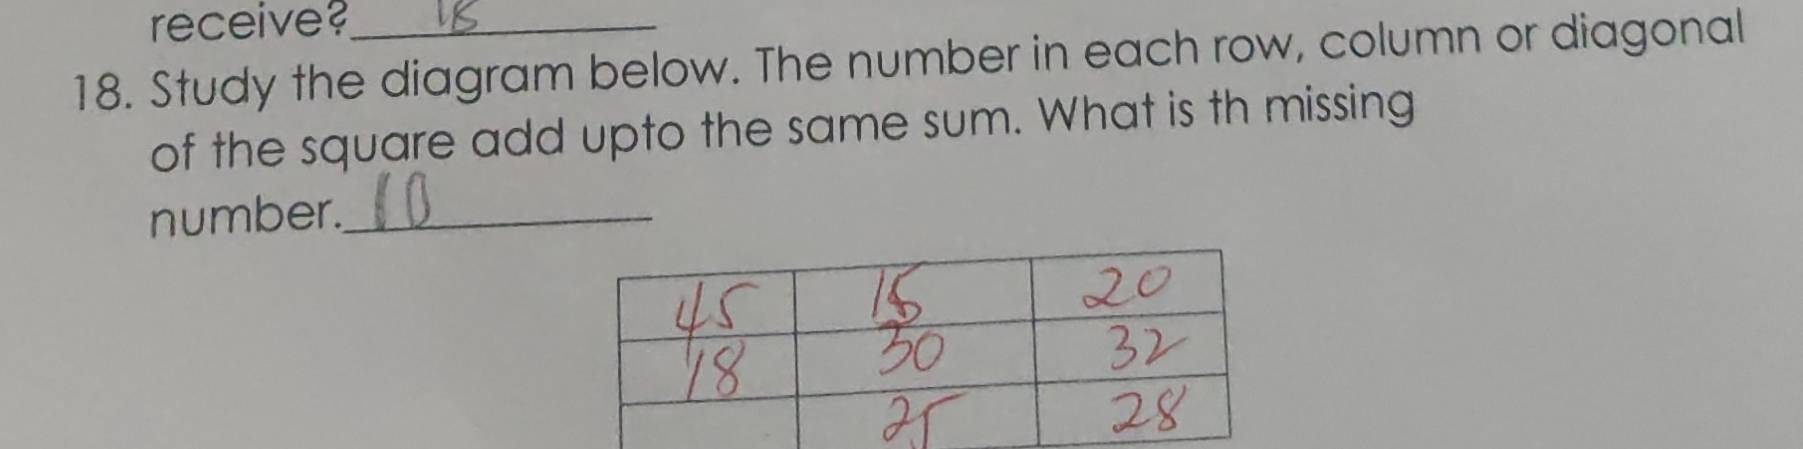 receive? 18
18. Study the diagram below. The number in each row, column or diagonal
of the square add upto the same sum. What is th missing
number. 10
45 15 20
18 30 32
25 28